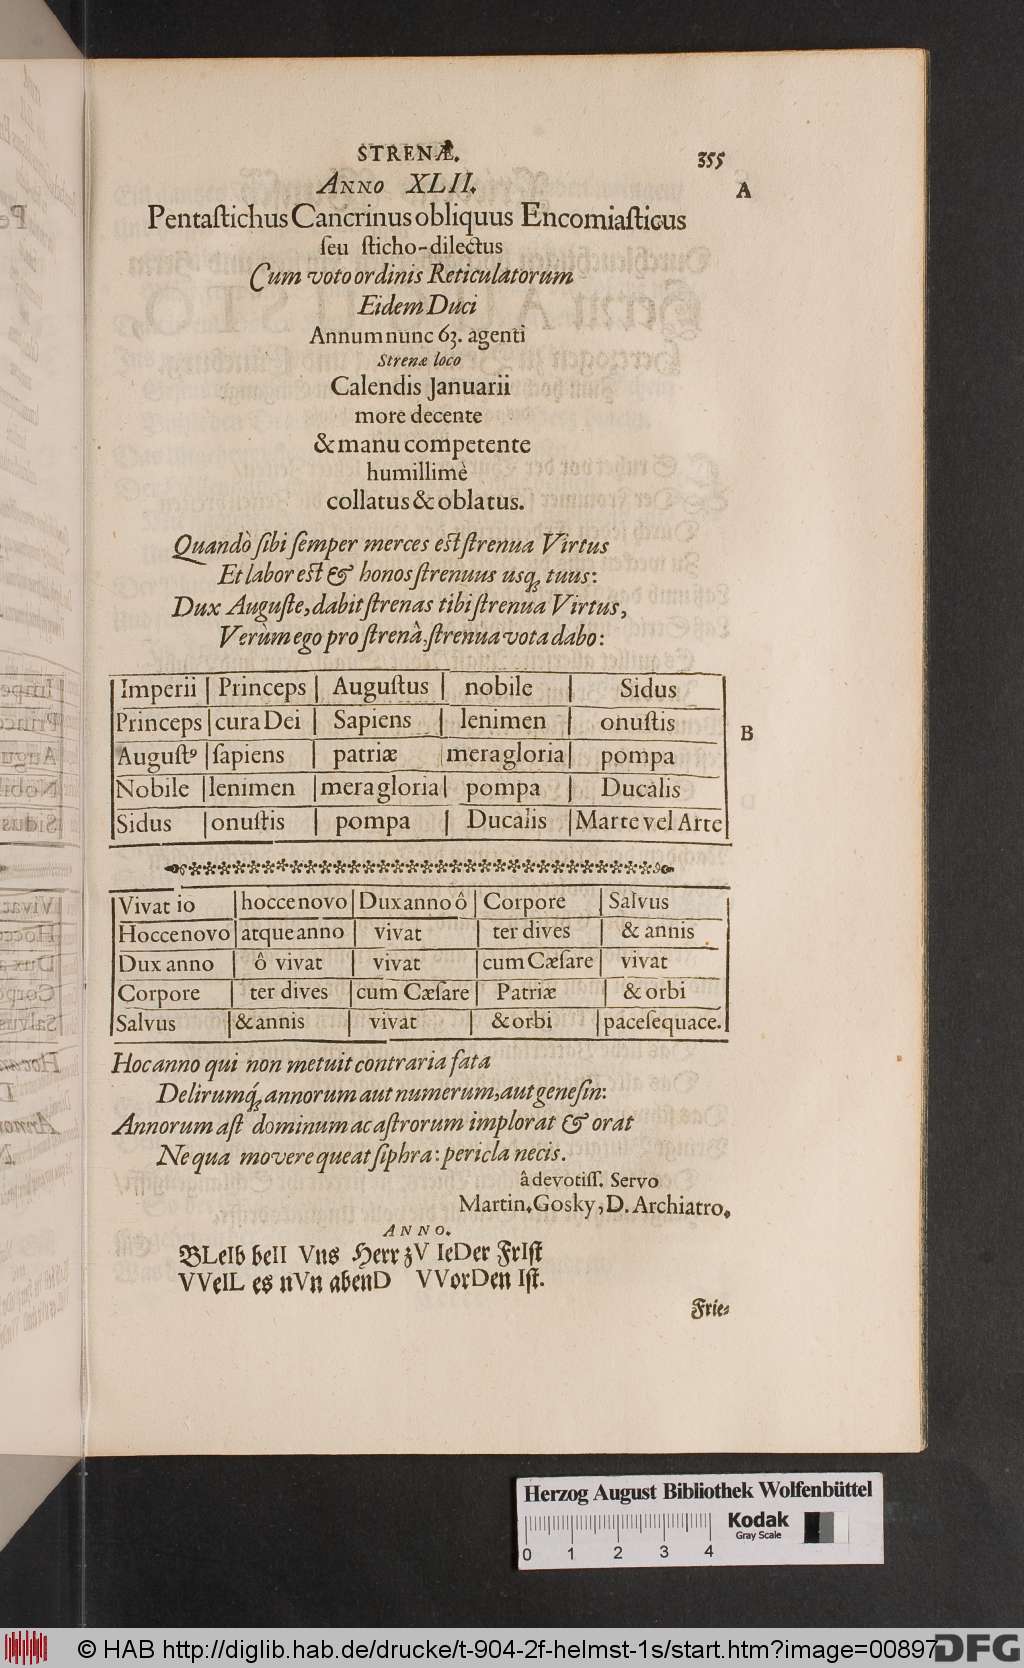 STRENÆ.
355
ANNO XLII.
A
Pentastichus Cancrinus obliquus Encomiasticus
seu sticho-dilectus
Cum voto ordinis Reticulatorum
Eidem Duci
Annum nunc 63. agenti
Strenæ loco
Calendis Januarii
more decente
& manu competente
humillimè
collatus & oblatus.
Quandò sibi semper merces est strenua Virtus
Et labor est & honos strenuus usq́; tuus:
Dux Auguste, dabit strenas tibi strenua Virtus,
Verùm ego pro strenâ, strenua vota dabo:
Imperii | Princeps | Augustus | nobile | Sidus
Princeps | cura Dei | Sapiens | lenimen | onustis
B
Augustꝰ | sapiens | patriæ | mera gloria | pompa
Nobile | lenimen | mera gloria | pompa | Ducalis
Sidus | onustis | pompa | Ducalis | Marte vel Arte
Vivat io | hocce novo | Dux anno ô | Corpore | Salvus
Hocce novo | atque anno | vivat | ter dives | & annis
Dux anno | ô vivat | vivat | cum Cæsare | vivat
Corpore | ter dives | cum Cæsare | Patriæ | & orbi
Salvus | & annis | vivat | & orbi | pace sequace.
Hoc anno qui non metuit contraria fata
Delirumq́; annorum aut numerum, aut genesin:
Annorum ast dominum ac astrorum implorat & orat
Ne qua movere queat siphra: pericla necis.
â devotiss. Servo
Martin. Gosky, D. Archiatro.
ANNO.
BLeIb beII Vns Herr zV IeDer FrIst
VVeIL es nVn abenD VVorDen Ist.
Frie-
Herzog August Bibliothek Wolfenbüttel
Kodak
Gray Scale
0 1 2 3 4
© HAB http://diglib.hab.de/drucke/t-904-2f-helmst-1s/start.htm?image=00897
DFG